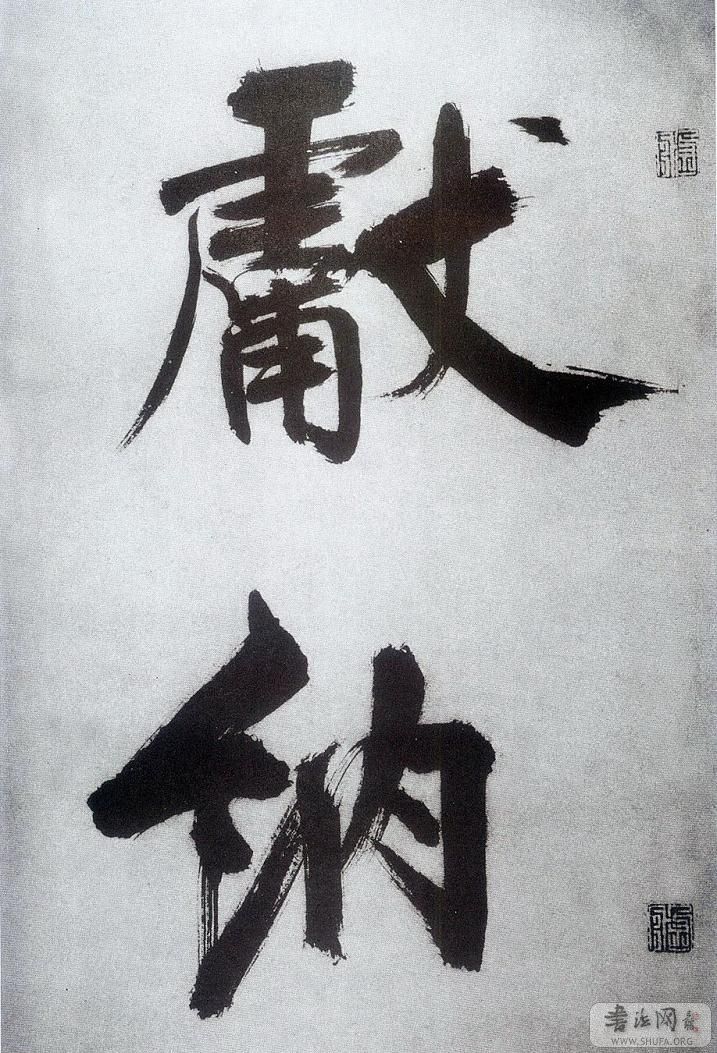 獻
納
书法网
WWW.SHUFA.ORG